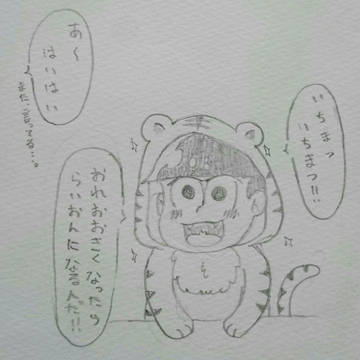 いちまつ
いちまつ!!
あ〜
はいはい
おれおおきくなったら
らいおんになるんだ!!